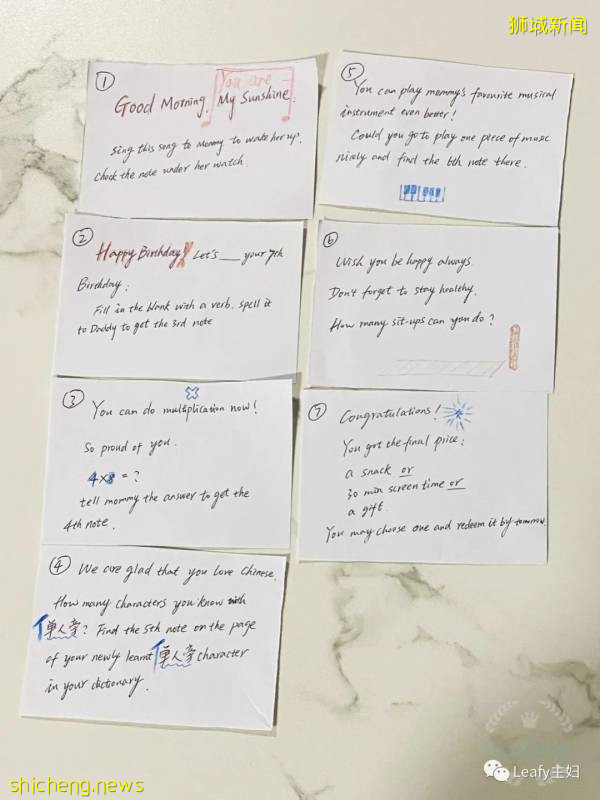 狮城新闻
①
You are
Good Morning, My Sunshine.
Sing this song to Mommy to wake her up.
Check the note under her watch.
②
Happy Birthday! Let's ___ your 7th
Birthday.
Fill in the blank with a verb. spell it
to Daddy to get the 3rd note
③
You can do multiplication now!
So proud of you.
4×8 = ?
tell mommy the answer to get the
4th note.
④ We are glad that you love Chinese.
How many characters you know with
亻單人旁? Find the 5th note on the page
of your newly learnt 亻單人旁 character
in your dictionary.
⑤
You can play mommy's favourite musical
instrument even better!
Could you go to play one piece of music
nicely and find the 6th note there.
⑥
Wish you be happy always
Don't forget to stay healthy.
How many sit-ups can you do?
⑦ Congratulations!
You got the final price:
a snack or
30 min screen time or
a gift.
You may choose one and redeem it by tomorrow.
shicheng.news
Leafy主妇